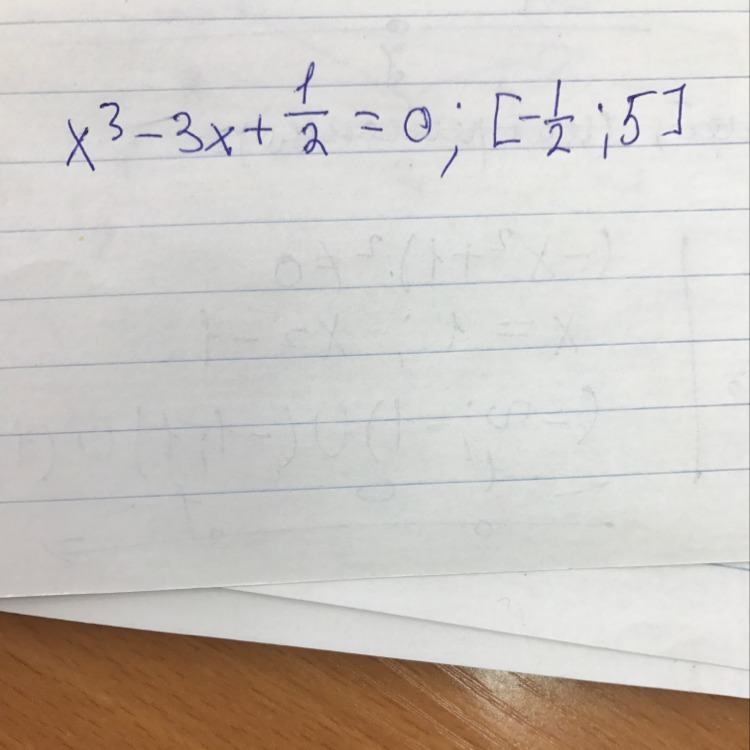 x³ - 3x + 1/2 = 0 ; [-1/2 ; 5]